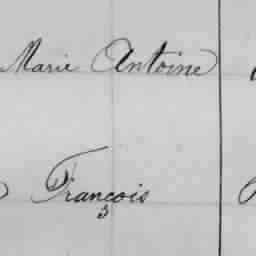 Marie Antoine
François